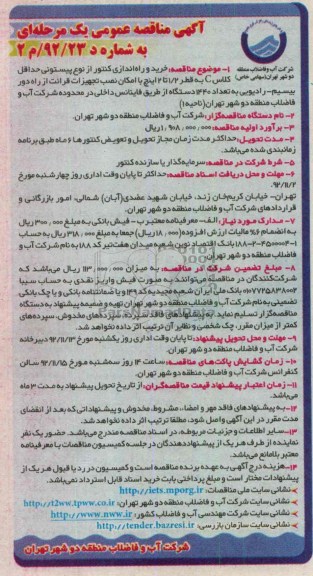 آگهی مناقصه عمومی یک مرحله‌ای
به شماره د ۹۲/۲۳/م۲
شرکت آب و فاضلاب منطقه
دو شهر تهران (سهامی خاص)
۱- موضوع مناقصه: خرید و راه‌اندازی کنتور از نوع پیستونی حداقل
کلاس C به قطر ۱/۲ تا ۲ اینچ با امکان نصب تجهیزات قرائت از راه دور
بیسیم - رادیویی به تعداد ۱۴۴۰ دستگاه از طریق فاینانس داخلی در محدوده شرکت آب و
فاضلاب منطقه دو شهر تهران (ناحیه ۱)
۲- نام دستگاه مناقصه‌گزار: شرکت آب و فاضلاب منطقه دو شهر تهران.
۳- برآورد اولیه مناقصه: ۱,۹۰۸,۰۰۰,۰۰۰ ریال
۴- مدت تحویل: حداکثر مدت زمان مجاز تحویل و تعویض کنتورها ۶ ماه طبق برنامه
زمانبندی شده می‌باشد.
۵- شرط شرکت در مناقصه: سرمایه‌گذار یا سازنده کنتور
۶- مهلت و محل دریافت اسناد مناقصه: حداکثر تا پایان وقت اداری روز چهارشنبه مورخ
۹۲/۱۱/۲
تهران- خیابان کریم‌خان زند، خیابان شهید عضدی (آبان) شمالی، امور بازرگانی و
قراردادهای شرکت آب و فاضلاب منطقه دو شهر تهران.
۷- مدارک مورد نیاز: الف- معرفینامه معتبر ب- فیش بانکی به مبلغ ۳۰۰,۰۰۰ ریال
به انضمام ۶٪ مالیات ارزش افزوده (۱۸,۰۰۰ ریال) جمعا به مبلغ ۳۱۸,۰۰۰ ریال به حساب
بانک اقتصاد نوین شعبه میدان هفت‌تیر کد ۱۸۸ به نام شرکت آب و
فاضلاب منطقه دو شهر تهران.
۸- مبلغ تضمین شرکت در مناقصه: به میزان ۱۱۳,۰۰۰,۰۰۰ ریال می‌باشد که
شرکت‌کنندگان در مناقصه می‌توانند به صورت فیش واریز نقدی به حساب سیبا
بانک ملی ایران شعبه و یا ضمانتنامه بانکی و یا چک بانکی
تضمینی به نام شرکت آب و فاضلاب منطقه دو شهر تهران تهیه و ضمیمه پیشنهاد به دستگاه
مناقصه‌گزار تسلیم نماید. به پیشنهادهای فاقد سپرده، سپرده‌های مخدوش، سپرده‌های
کمتر از میزان مقرر، چک شخصی و نظایر آن ترتیب اثر داده نخواهد شد.
۹- مهلت و محل تحویل پیشنهاد: تا پایان وقت اداری روز یکشنبه مورخ ۹۲/۱۱/۱۳ دبیرخانه
شرکت آب و فاضلاب منطقه دو شهر تهران.
۱۰- زمان گشایش پاکت‌های مناقصه: ساعت ۱۴ روز سه‌شنبه مورخ ۹۲/۱۱/۱۵ سالن
کنفرانس شرکت آب و فاضلاب منطقه دو شهر تهران.
۱۱- زمان اعتبار پیشنهاد قیمت مناقصه‌گران: از تاریخ تحویل پیشنهاد به مدت ۳ ماه
می‌باشد.
۱۲- به پیشنهادهای فاقد مهر و امضا، مشروط، مخدوش و پیشنهاداتی که بعد از انقضای
مدت مقرر در این آگهی واصل شود، مطلقا ترتیب اثر داده نخواهد شد.
۱۳- سایر اطلاعات و جزئیات مربوطه، در اسناد مناقصه مندرج می‌باشد. حضور یک نفر
نماینده از طرف هر یک از پیشنهاددهندگان در جلسه کمیسیون مناقصات با معرفینامه
معتبر بلامانع می‌باشد.
۱۴- هزینه درج آگهی به عهده برنده مناقصه است و کمیسیون در رد یا قبول هر یک از
پیشنهادات مختار است و مبلغ پرداختی بابت خرید اسناد قابل استرداد نمی‌باشد.
نشانی سایت ملی مناقصات: http://iets.mporg.ir
نشانی سایت شرکت آب و فاضلاب منطقه دو شهر تهران: http://t2ww.tpww.co.ir
نشانی سایت شرکت مهندسی آب و فاضلاب کشور: http://www.nww.ir
نشانی سایت سازمان بازرسی: http://tender.bazresi.ir
شرکت آب و فاضلاب منطقه دو شهر تهران